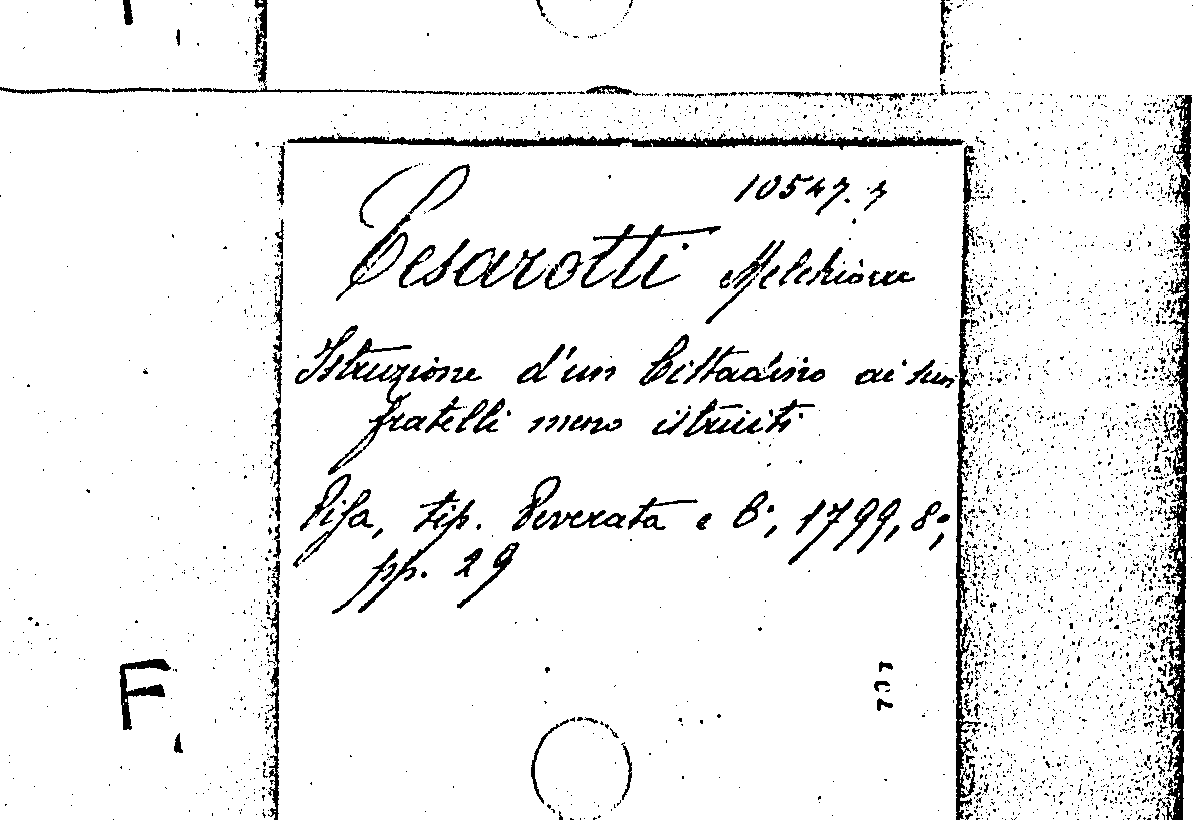 10547.7
Cesarotti Melchiorre
Istruzione d'un Cittadino ai suoi
fratelli meno istruiti
Pisa, tip. Peverata e C.i, 1799, 8°,
pp. 29
F